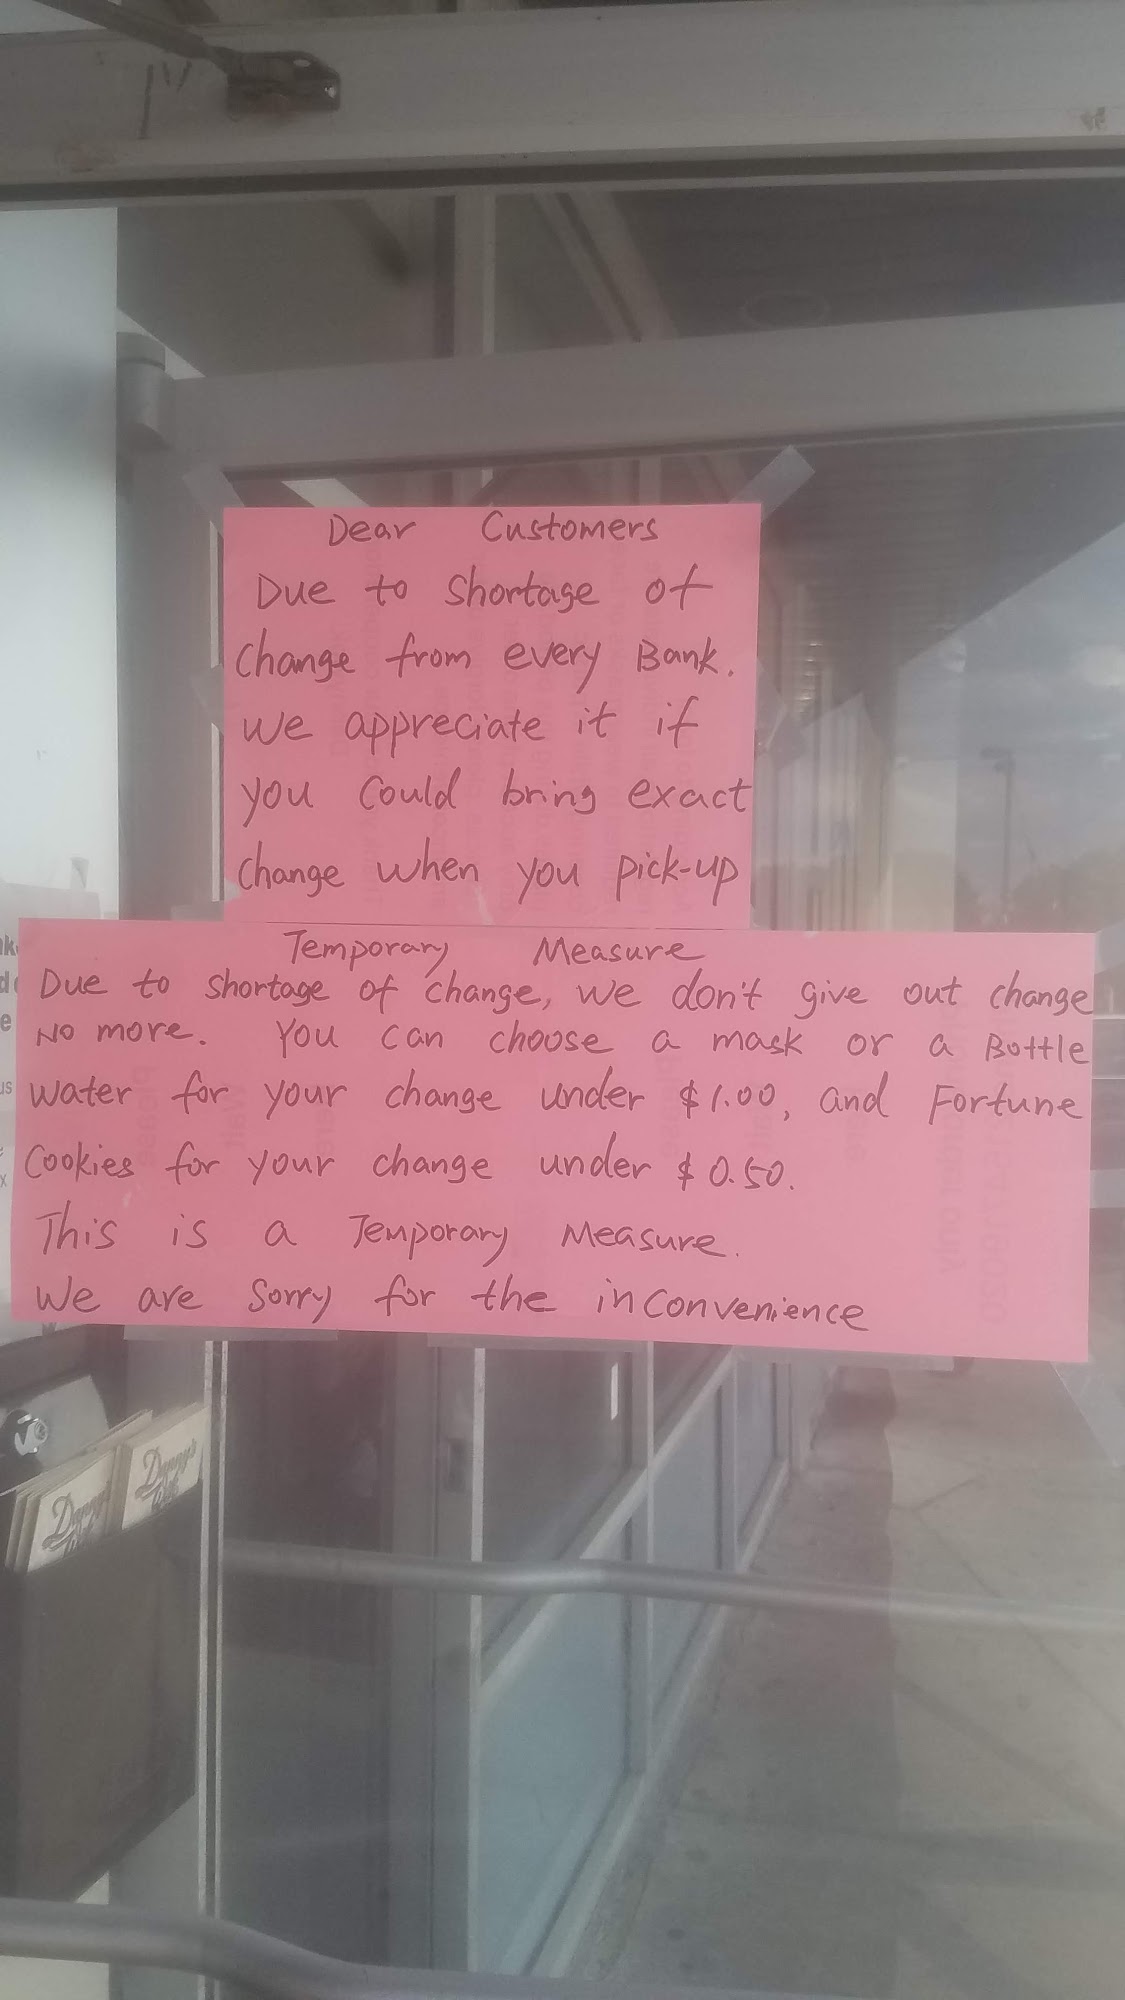 Dear Customers
Due to shortage of
change from every Bank.
We appreciate it if
you could bring exact
change when you pick-up
Temporary Measure
Due to shortage of change, we don't give out change
No more. You can choose a mask or a Bottle
water for your change under $1.00, and Fortune
Cookies for your change under $0.50.
This is a Temporary Measure.
We are sorry for the inconvenience